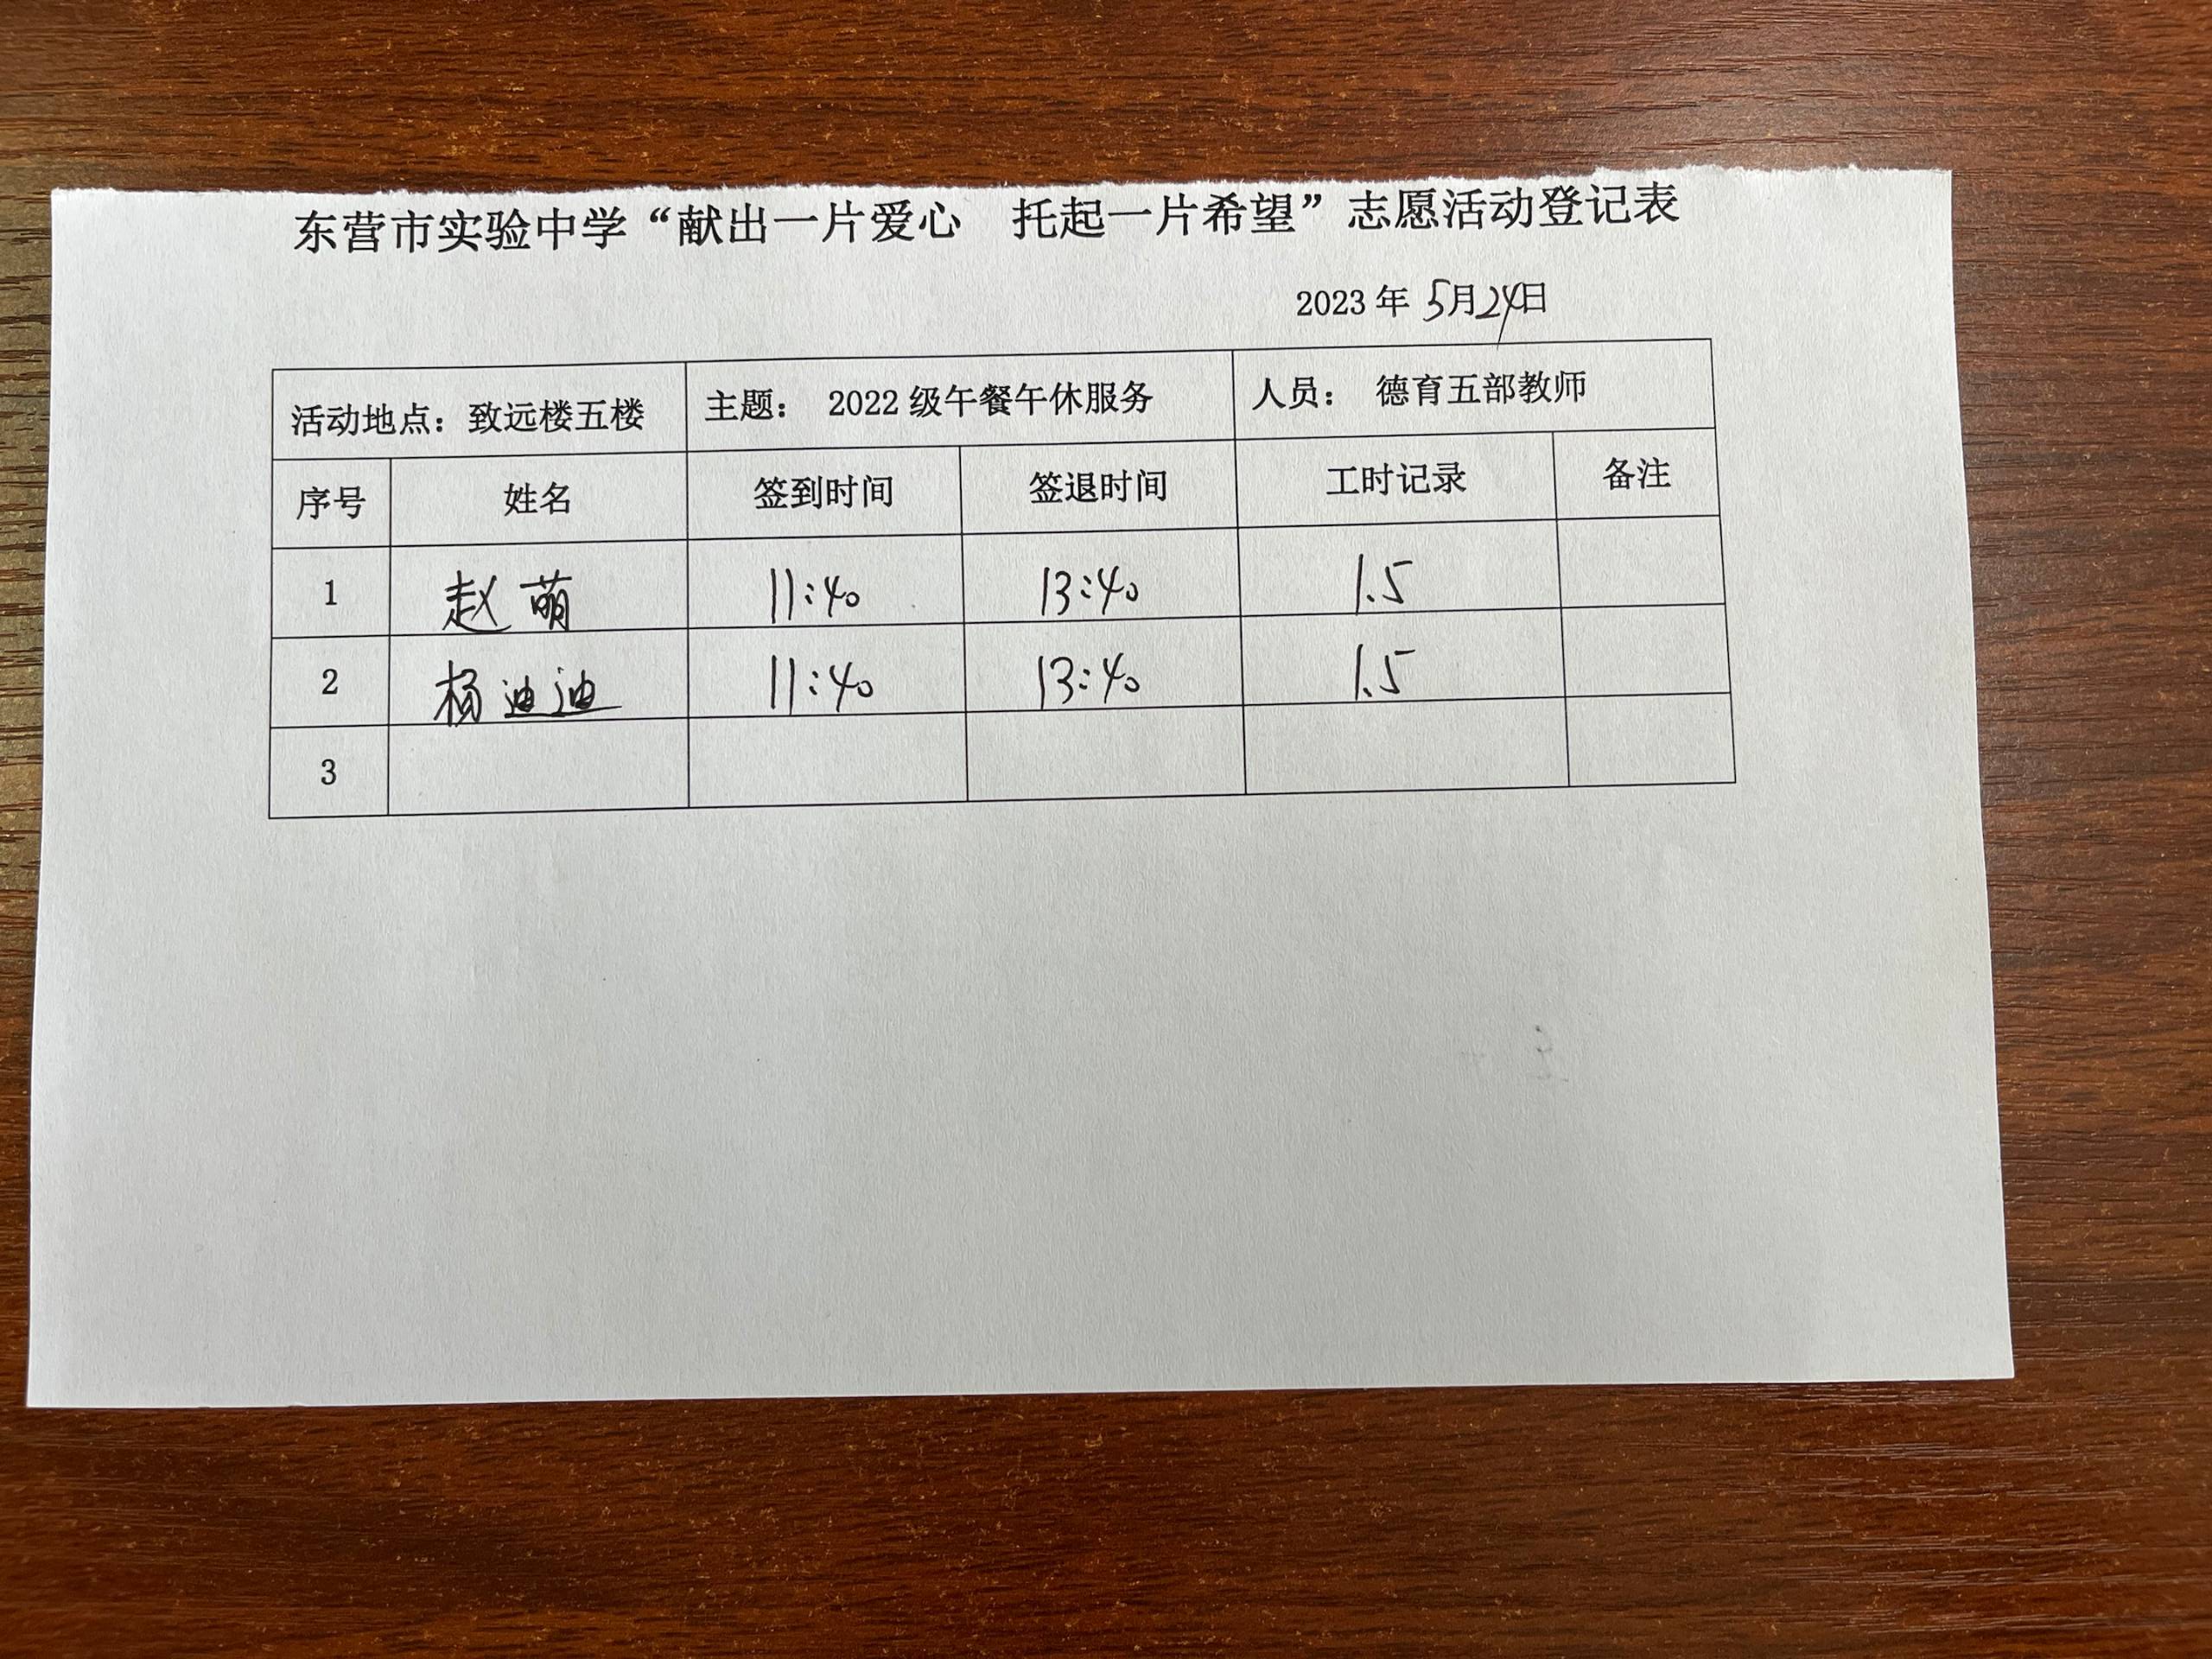 东营市实验中学“献出一片爱心 托起一片希望”志愿活动登记表
2023 年 5月24日
活动地点：致远楼五楼 主题： 2022 级午餐午休服务 人员： 德育五部教师
序号 姓名 签到时间 签退时间 工时记录 备注
1 赵萌 11:40 13:40 1.5
2 杨迪迪 11:40 13:40 1.5
3